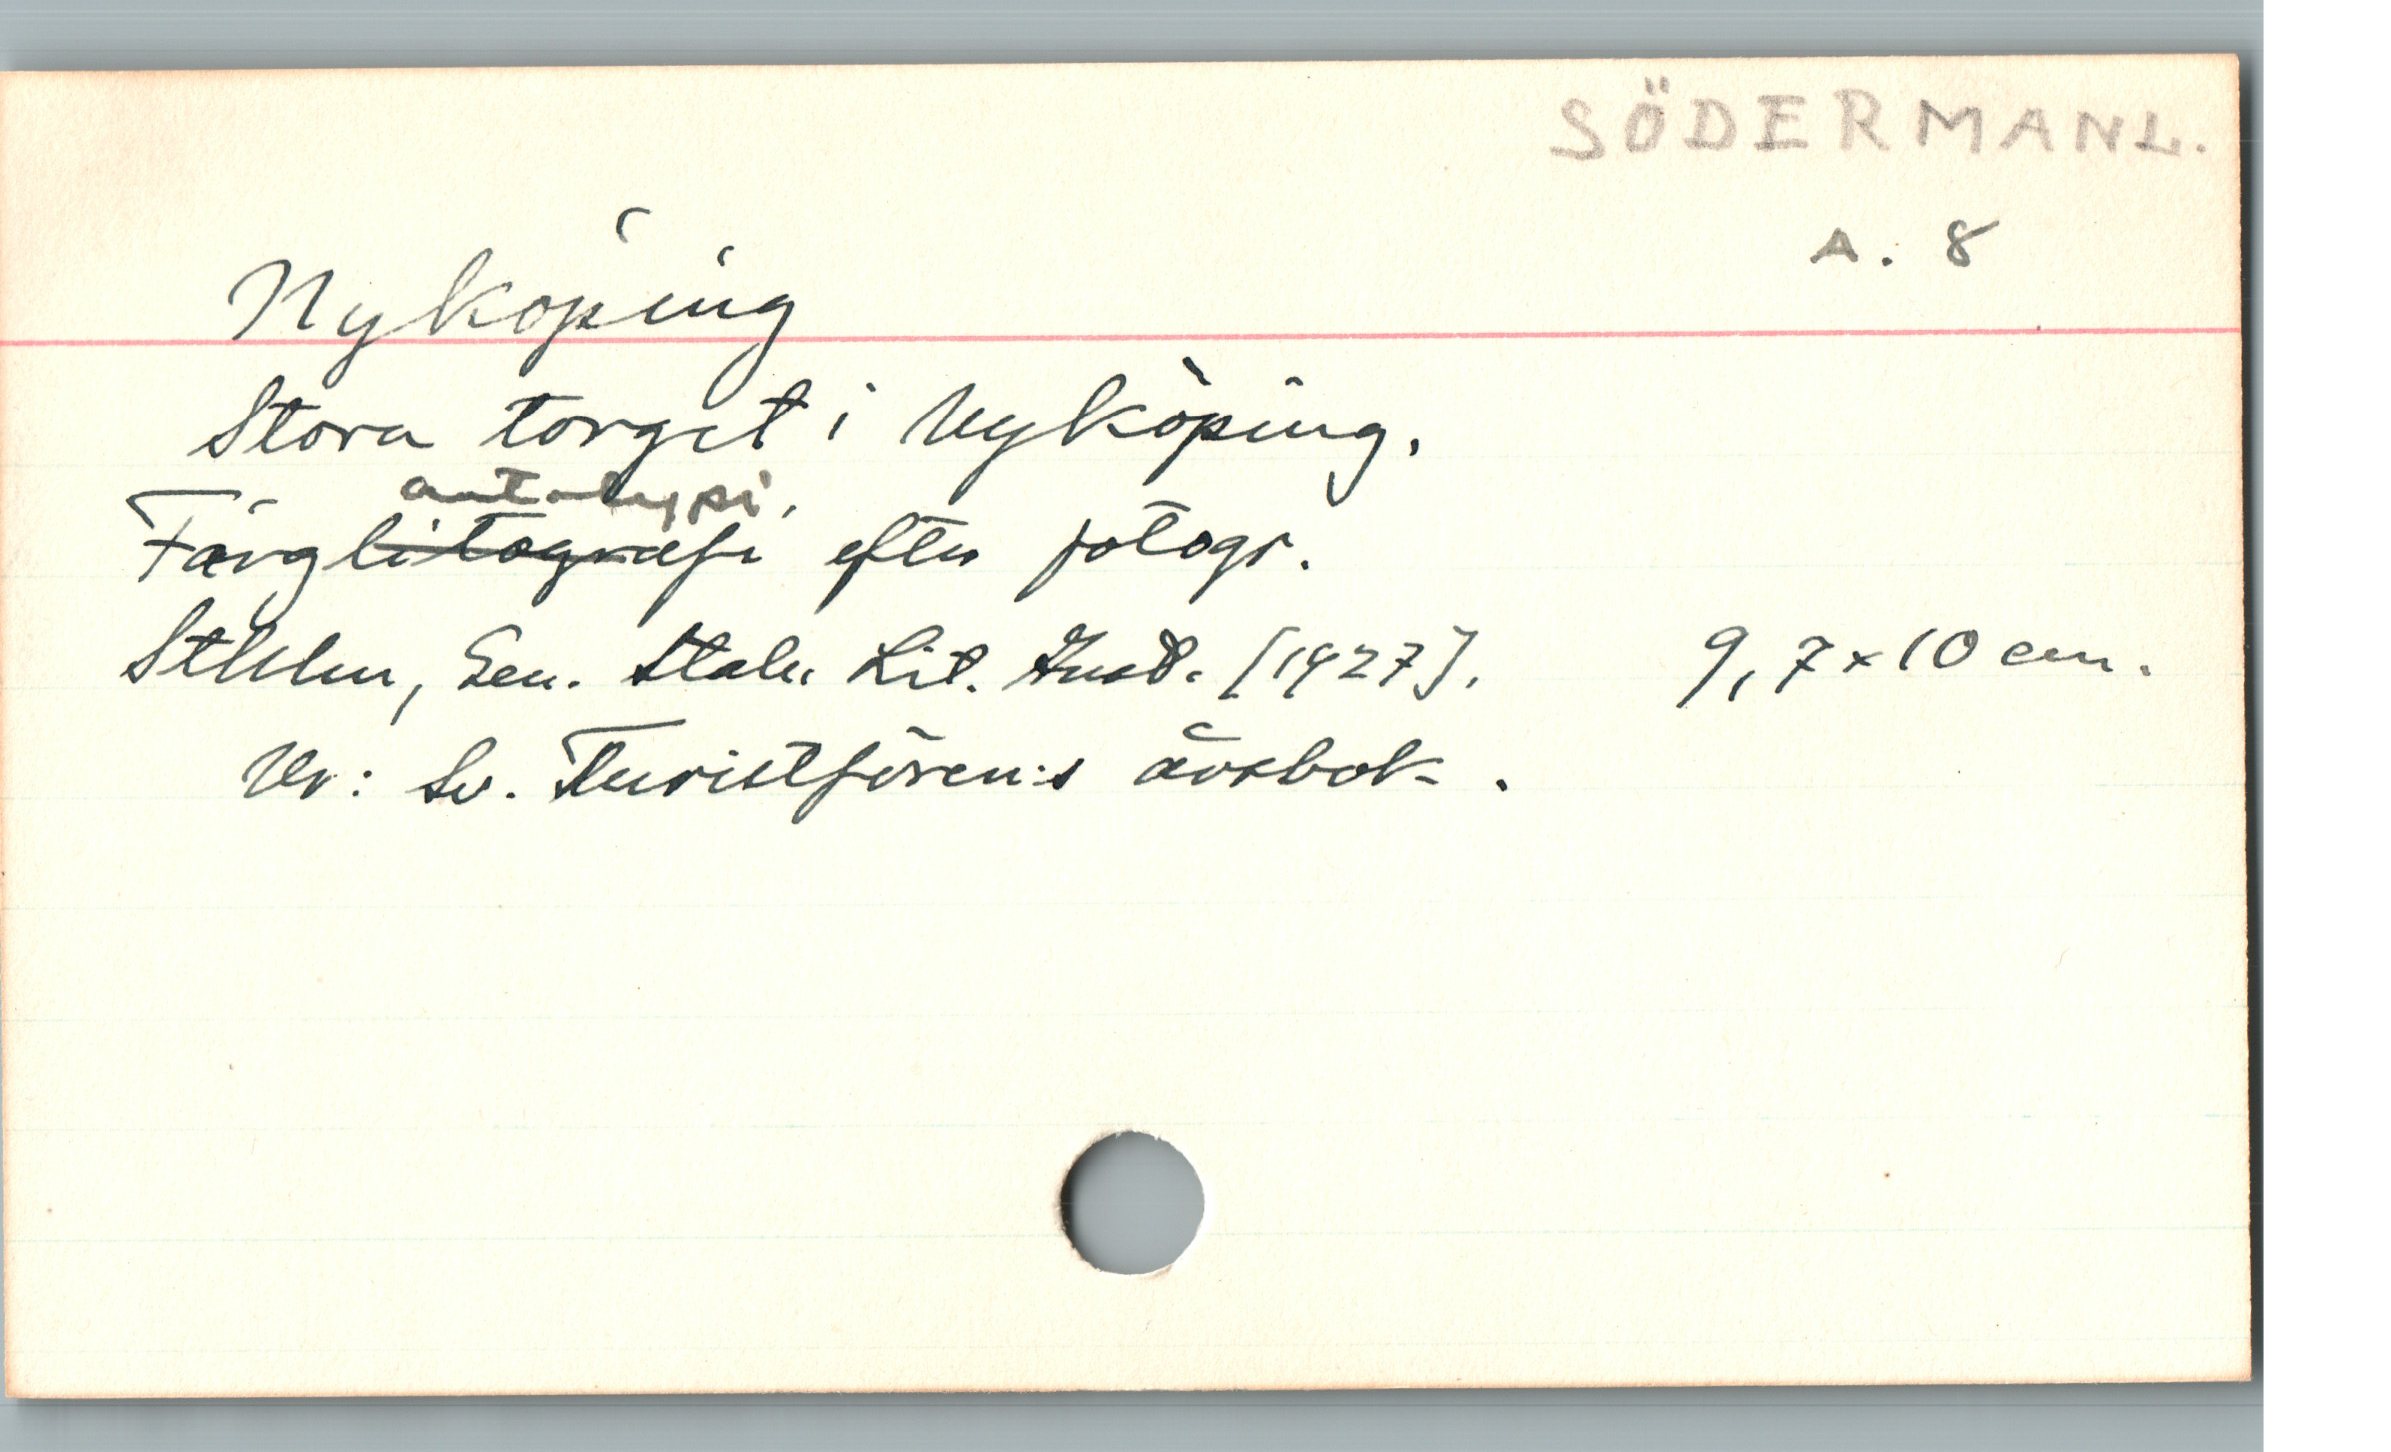 SÖDERMANL.
A. 8
Nyköping
Stora torget i Nyköping.
autotypi,
Färglitografi efter fotogr.
Sthlm, Gen. Stab. Lit. Anst. [1927]. 9,7 x 10 cm.
Ur: Sv. Turistfören:s årsbok.